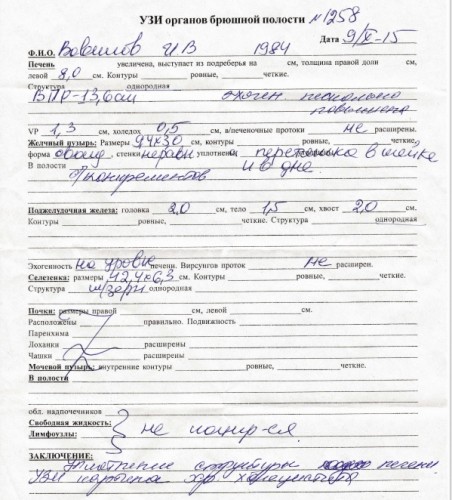 УЗИ органов брюшной полости №1258
Дата 9/X-15
Ф.И.О. Вавилов И.В 1984
Печень увеличена, выступает из подреберья на см, толщина правой доли см,
левой 8,0 см. Контуры ровные, четкие.
Структура однородная
ВПР-13,6см эхоген. несколько
повышена
VP 1,3 см, холедох 0,5 см, в/печеночные протоки не расширены.
Желчный пузырь: Размеры 94х30 см, контуры ровные, четкие,
форма овоид, стенки неравн уплотнены, перетяжка в шейке
В полости и в дне.
б/конкрементов
Поджелудочная железа: головка 2,0 см, тело 1,5 см, хвост 2,0 см.
Контуры ровные, четкие. Структура однородная
Эхогенность на уровне печени. Вирсунгов проток не расширен.
Селезенка: размеры 12,4х6,3 см. Контуры ровные, четкие.
Структура м/зерн однородная
Почки: размеры правой см, левой см.
Расположены правильно. Подвижность
Паренхима
Лоханки расширены
Чашки расширены
Мочевой пузырь: внутренние контуры ровные, четкие.
В полости
обл. надпочечников
Свободная жидкость: не
Лимфоузлы:
ЗАКЛЮЧЕНИЕ:
Уплотнение структуры печени
УЗИ картина хр. холецистита